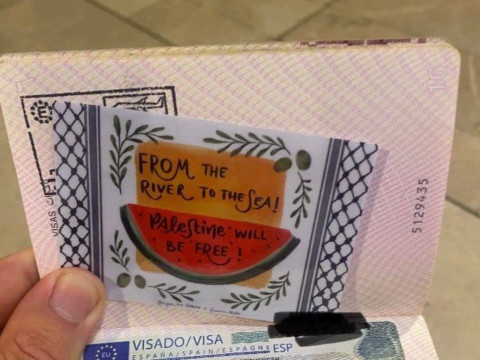 FROM THE
RIVER TO THE SEA!
Palestine WILL
BE FREE!
VISAS
5129435
16
EU
VISADO/VISA
ESPAÑA/SPAIN/ESPAGNE
ESP